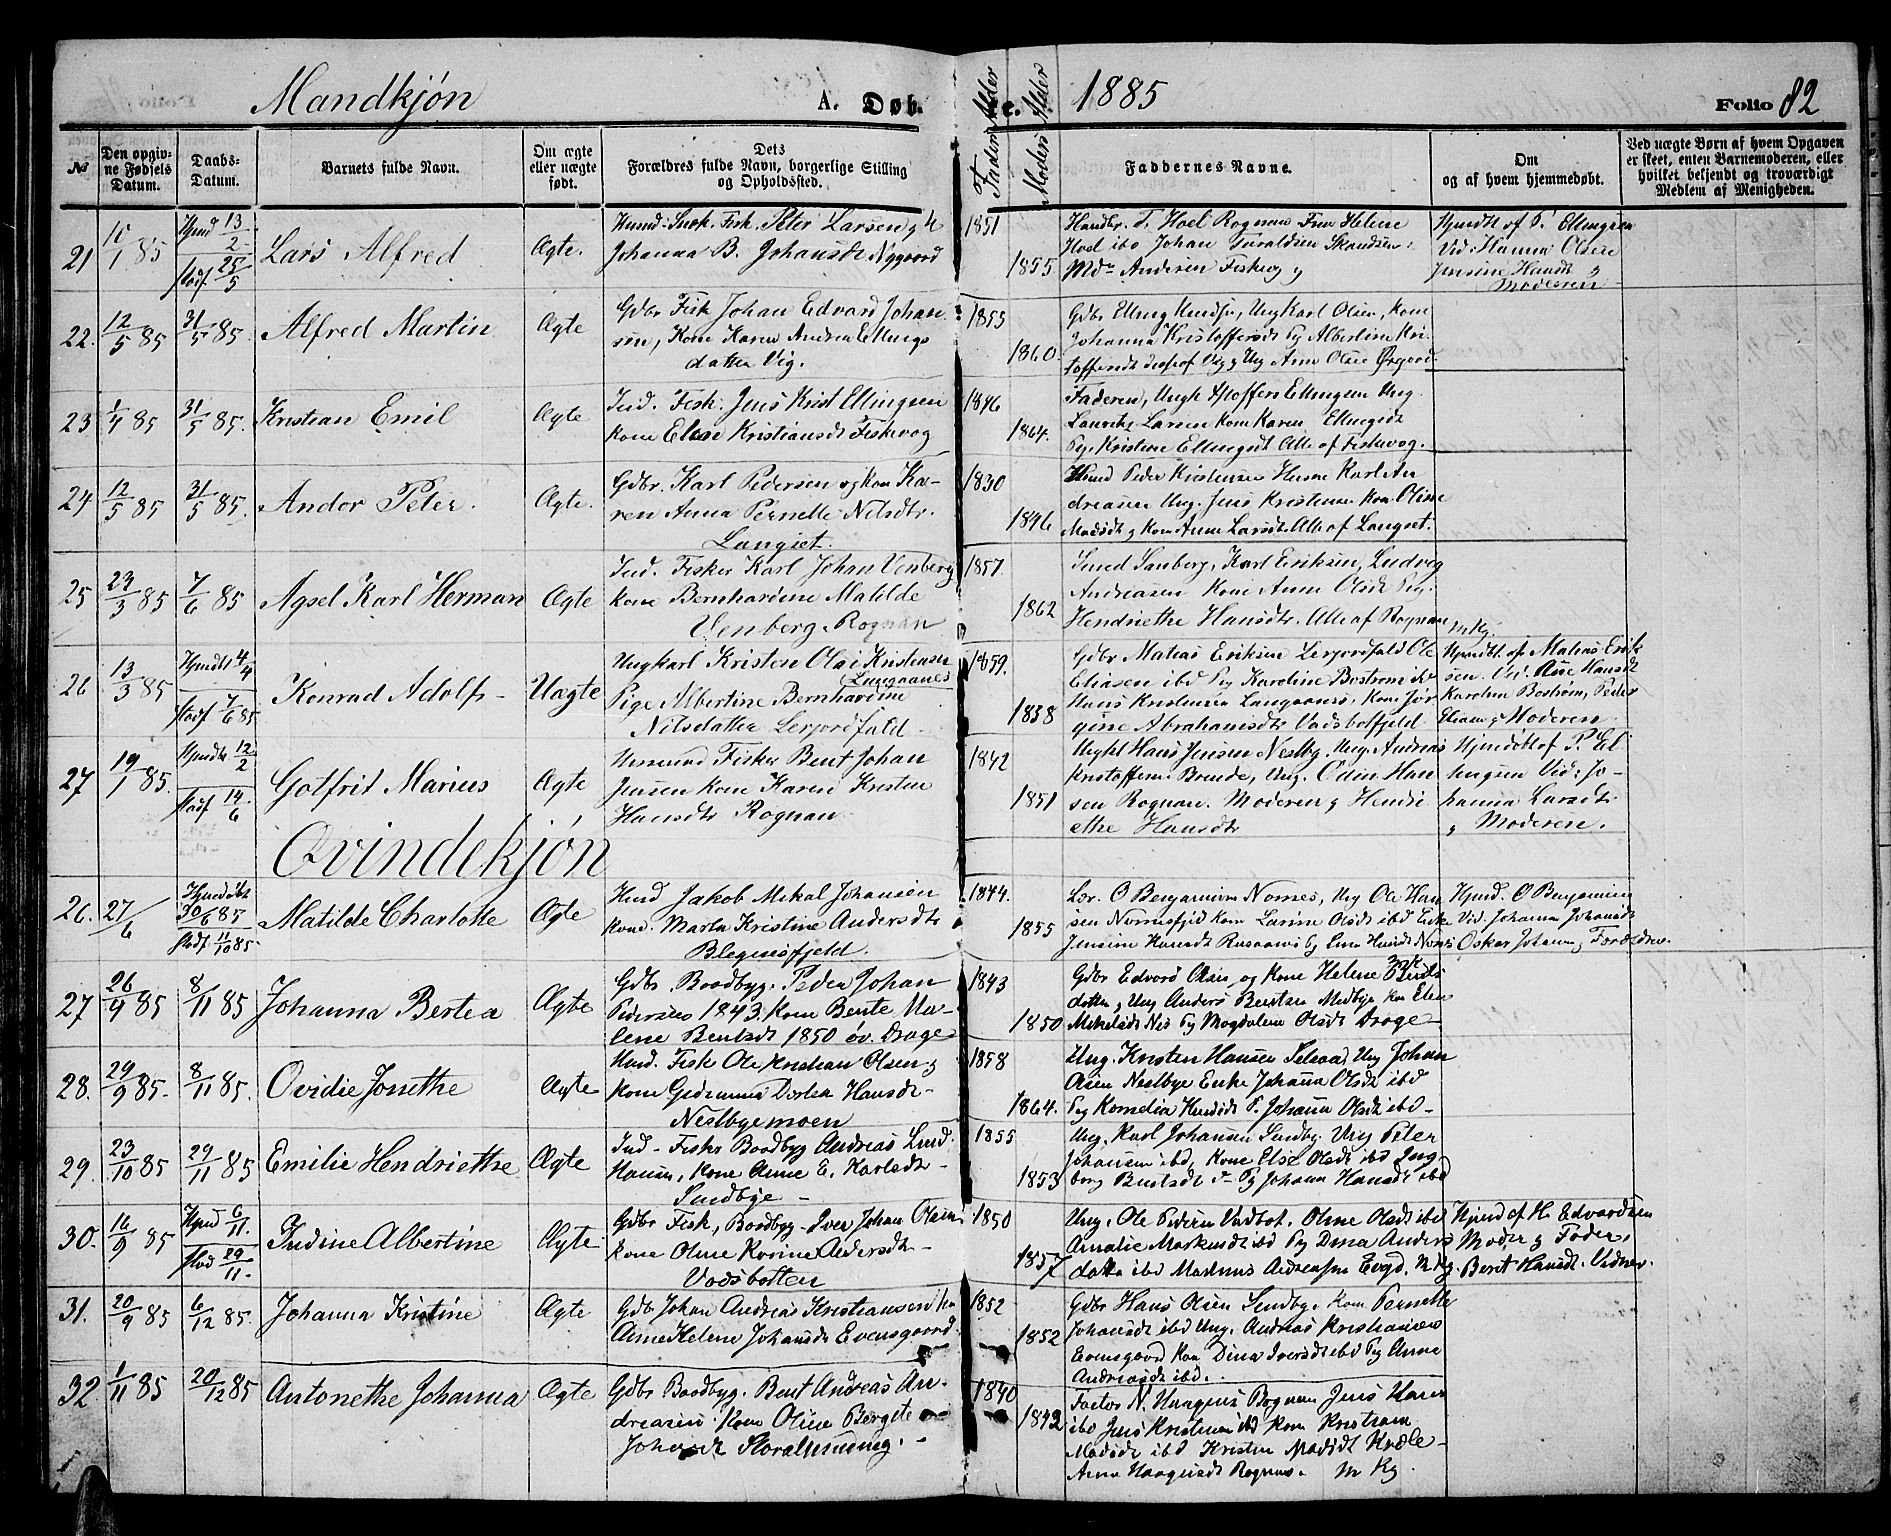 Mandkjøn
A. Døb
te.
1885
Folio 82
№
Den opgiv-
ne Fødsels
Datum.
Daabs-
Datum.
Barnets fulde Navn.
Om ægte
eller uægte
født.
Dets
Forældres fulde Navn, borgerlige Stilling
og Opholdssted.
Faders Alder
Moders Alder
Faddernes Navne.
Om
og af hvem hjemmedøbt.
Ved uægte Børn af hvem Opgaven
er skeet, enten Barnemoderen, eller
hvilket bekjendt og troværdigt
Medlem af Menigheden.
21
1/85
Hjmd 13/2
Stadf 25/5
Lars Alfred
Ægte.
Fisk. Peter Larsen
Johanna B. Johansdt Nygaard
1851
1855
Handbr. T. Hoel Rognan Fru Helene
Hoel ibd Johan
Andersen Fiskvog
Hjmdt af P. Ellingsen
Vid. Hanna Olsen
Jensine Hansdt
Moderen
22.
12/5 85
31/5 85.
Alfred Martin
Ægte
Gdbr Fisk Johan Edvard Johan
sen, Kone Karen Andrea Ellings
datter Vig.
1855
1860.
Gdbr Elling Knudsen, Ung Karl Olsen, Kone
Johanna Kristoffersdt Pg Albertine Kri
stoffersdt af Vig Ung Arne Olsen
23
1/4 85
31/5 85.
Kristian Emil
Ægte
Ind. Fisk. Jens Krist Ellingsen
Kone Elen Kristiansdt Fiskevog
1846
1864.
Faderen, Ungk Ellingsen Ung
Lauritz Larsen Kone Karen Ellingsdt
Pg. Kristine Ellingsdt Alle af Fiskevog.
24
12/5 85
31/5 85.
Andor Peter
Ægte.
Gdbr. Karl Pedersen og Kone Ka-
ren Anna Pernelle Nilsdtr.
Langset.
1830
1846
Husmd Peder Kristensen Karl An
dreasen Ung. Jens Kristensen Kone Oline
Madsdt og Kone Anne Larsdt Alle af Langset.
25
23/3 85
7/6 85
Agsel Karl Herman
Ægte
Ind. Fisker Karl Johan Venberg
Kone Bernhardine Matilde
Venberg. Rognan
1857.
1862
Smed Sanberg, Karl Eriksen, Ludvig
Andreasen Kone Anne Olsdt Pig.
Hendriethe Hansdtr. Alle af Rognan
26
13/3 85
Hjmdt 4/4
Stadf 7/6 85
Konrad Adolf
Uægte
Ungkarl Kristen Olai Kristensen
Langaanes
Pige Albertine Bernhardine
Nilsdatter Lerjordfald
1859.
1858
Gdbr Matias Eriksen Lerjordfald Ole
Eliasen ibd Pg Karoline Bostrom ibd
Hans Kristensen Langaanes, Kone Jør
gine Abrahamsdtr Vadsbotfjeld
Hjmdt. af Matias Erik
sen. Vid. Ane Hansdt
Karoline Bostrøm, Peder
Eliasen og Moderen
27
19/1 85.
Hjmdt 12/2
Stadf 14/6
Gotfrit Marius
Ægte
Fisker Bent Johan
Jensen Kone Karen Kristen
Hansdtr Rognan
1842
1851
Hans Jensen Nestby. Ung. Andreas
Kristoffersen Brende, Ung. Odin Han
sen Rognan. Moderen og Hendri
ethe Hansdtr
Hjmdøbt af P. El
lingsen Vid: Jo-
hanna Larsdt
og Moderen.
Qvindekjøn
26.
27/6
Hjmdøbt
30/6 85
Stadf 11/10 85
Matilde Charlotte
Ægte
Husmd Jakob Mikal Johansen
Kone. Marta Kristine Andersdtr
Blegnesfjeld.
1844.
1855
Lær. O Benjaminsen Nornes, Ung Ole Han
sen Nornesfjeld Kone Larine Olsdt ibd Enke
Jensine Hansdt Rusaanes Pg Hansdt Nornes
Hjmd. O Benjaminsen
Vid. Johanna Johansdt
Oskar Johansen, Forældrene.
27
26/9 85
8/11 85
Johanna Bertea
Ægte
Gdbr Boodbyg. Peder Johan
Pedersen 1843. Kone Bente Ma-
lene Bentsdt 1850 øv. Drage
1843
1850
Gdbr Edvard Olsen og Kone Helene Bents
datter og Ung Anders Bentsen Medbye Kone Elen
Mikelsdt Nes Pg Magdalene Olsdt Drage
28.
29/9 85.
8/11 85.
Ovidie Jonethe
Ægte
Husmd. Fisk Ole Kristian Olsen og
Kone Hansdt
Nestbyemoen
1858
1864.
Ung. Kristen Hansen Ung Johan
Olsen Nestbye Enke Johanna Olsdt ibd
Pg Kornelia P. Johanna Olsdt ibd
29.
23/10 85
29/11 85
Emilie Hendriethe
Ægte
Ind - Fisker Boodbyg Andreas Lund
Hansen, Kone Anne E. Karlsdt
Sundbye
1855
1853
Ung. Karl Johansen Sundby. Ung Peter
Johansen ibd, Kone Else Olsdt ibd Ing-
borg Bentsdt Pg Johanna Hansdt ibd
30.
16/9 85
Hjmd 6/11.
Stad 29/11.
Indine Albertine
Ægte
Gdbr Fisk, Boodbyg. Iver Johan Olsen
Kone Oline Karine Andersdt
Vadsbotten
1850
1857
Ung. Ole Pedersen Vadbot. Oline Olsdt ibd
Amalie Markusdt ibd Pg Dina Anders
datter ibd
Hjmd af H. Edvardsen
Moder og Fader,
Berit Hansdt. Vidner.
31.
20/9 85
6/12 85.
Johanna Kristine
Ægte
Gdbr Johan Andreas Kristiansen
Anne Helene Johansdt Evensgaard
1852
1852
Gdbr Hans Olsen Sundby. Kone Pernelle
Johansdt ibd Ung. Andreas Kristiansen
Evensgaard Kone Dina Iversdt ibd Pg Anna
Andreasdt ibd.
32
1/11 85
20/12 85
Antonethe Johanna
Ægte
Gdbr Boodbyg. Bent Andreas An-
dreasen Kone Oline Bergete
Johansdt Storalmenning.
1840
1842
Factor N. Rognan Jens Hansen
ibd Jens Kristensen ibd Kone Kristiane
Madsdt ibd Kristen Madsdt
Anna Rognan.